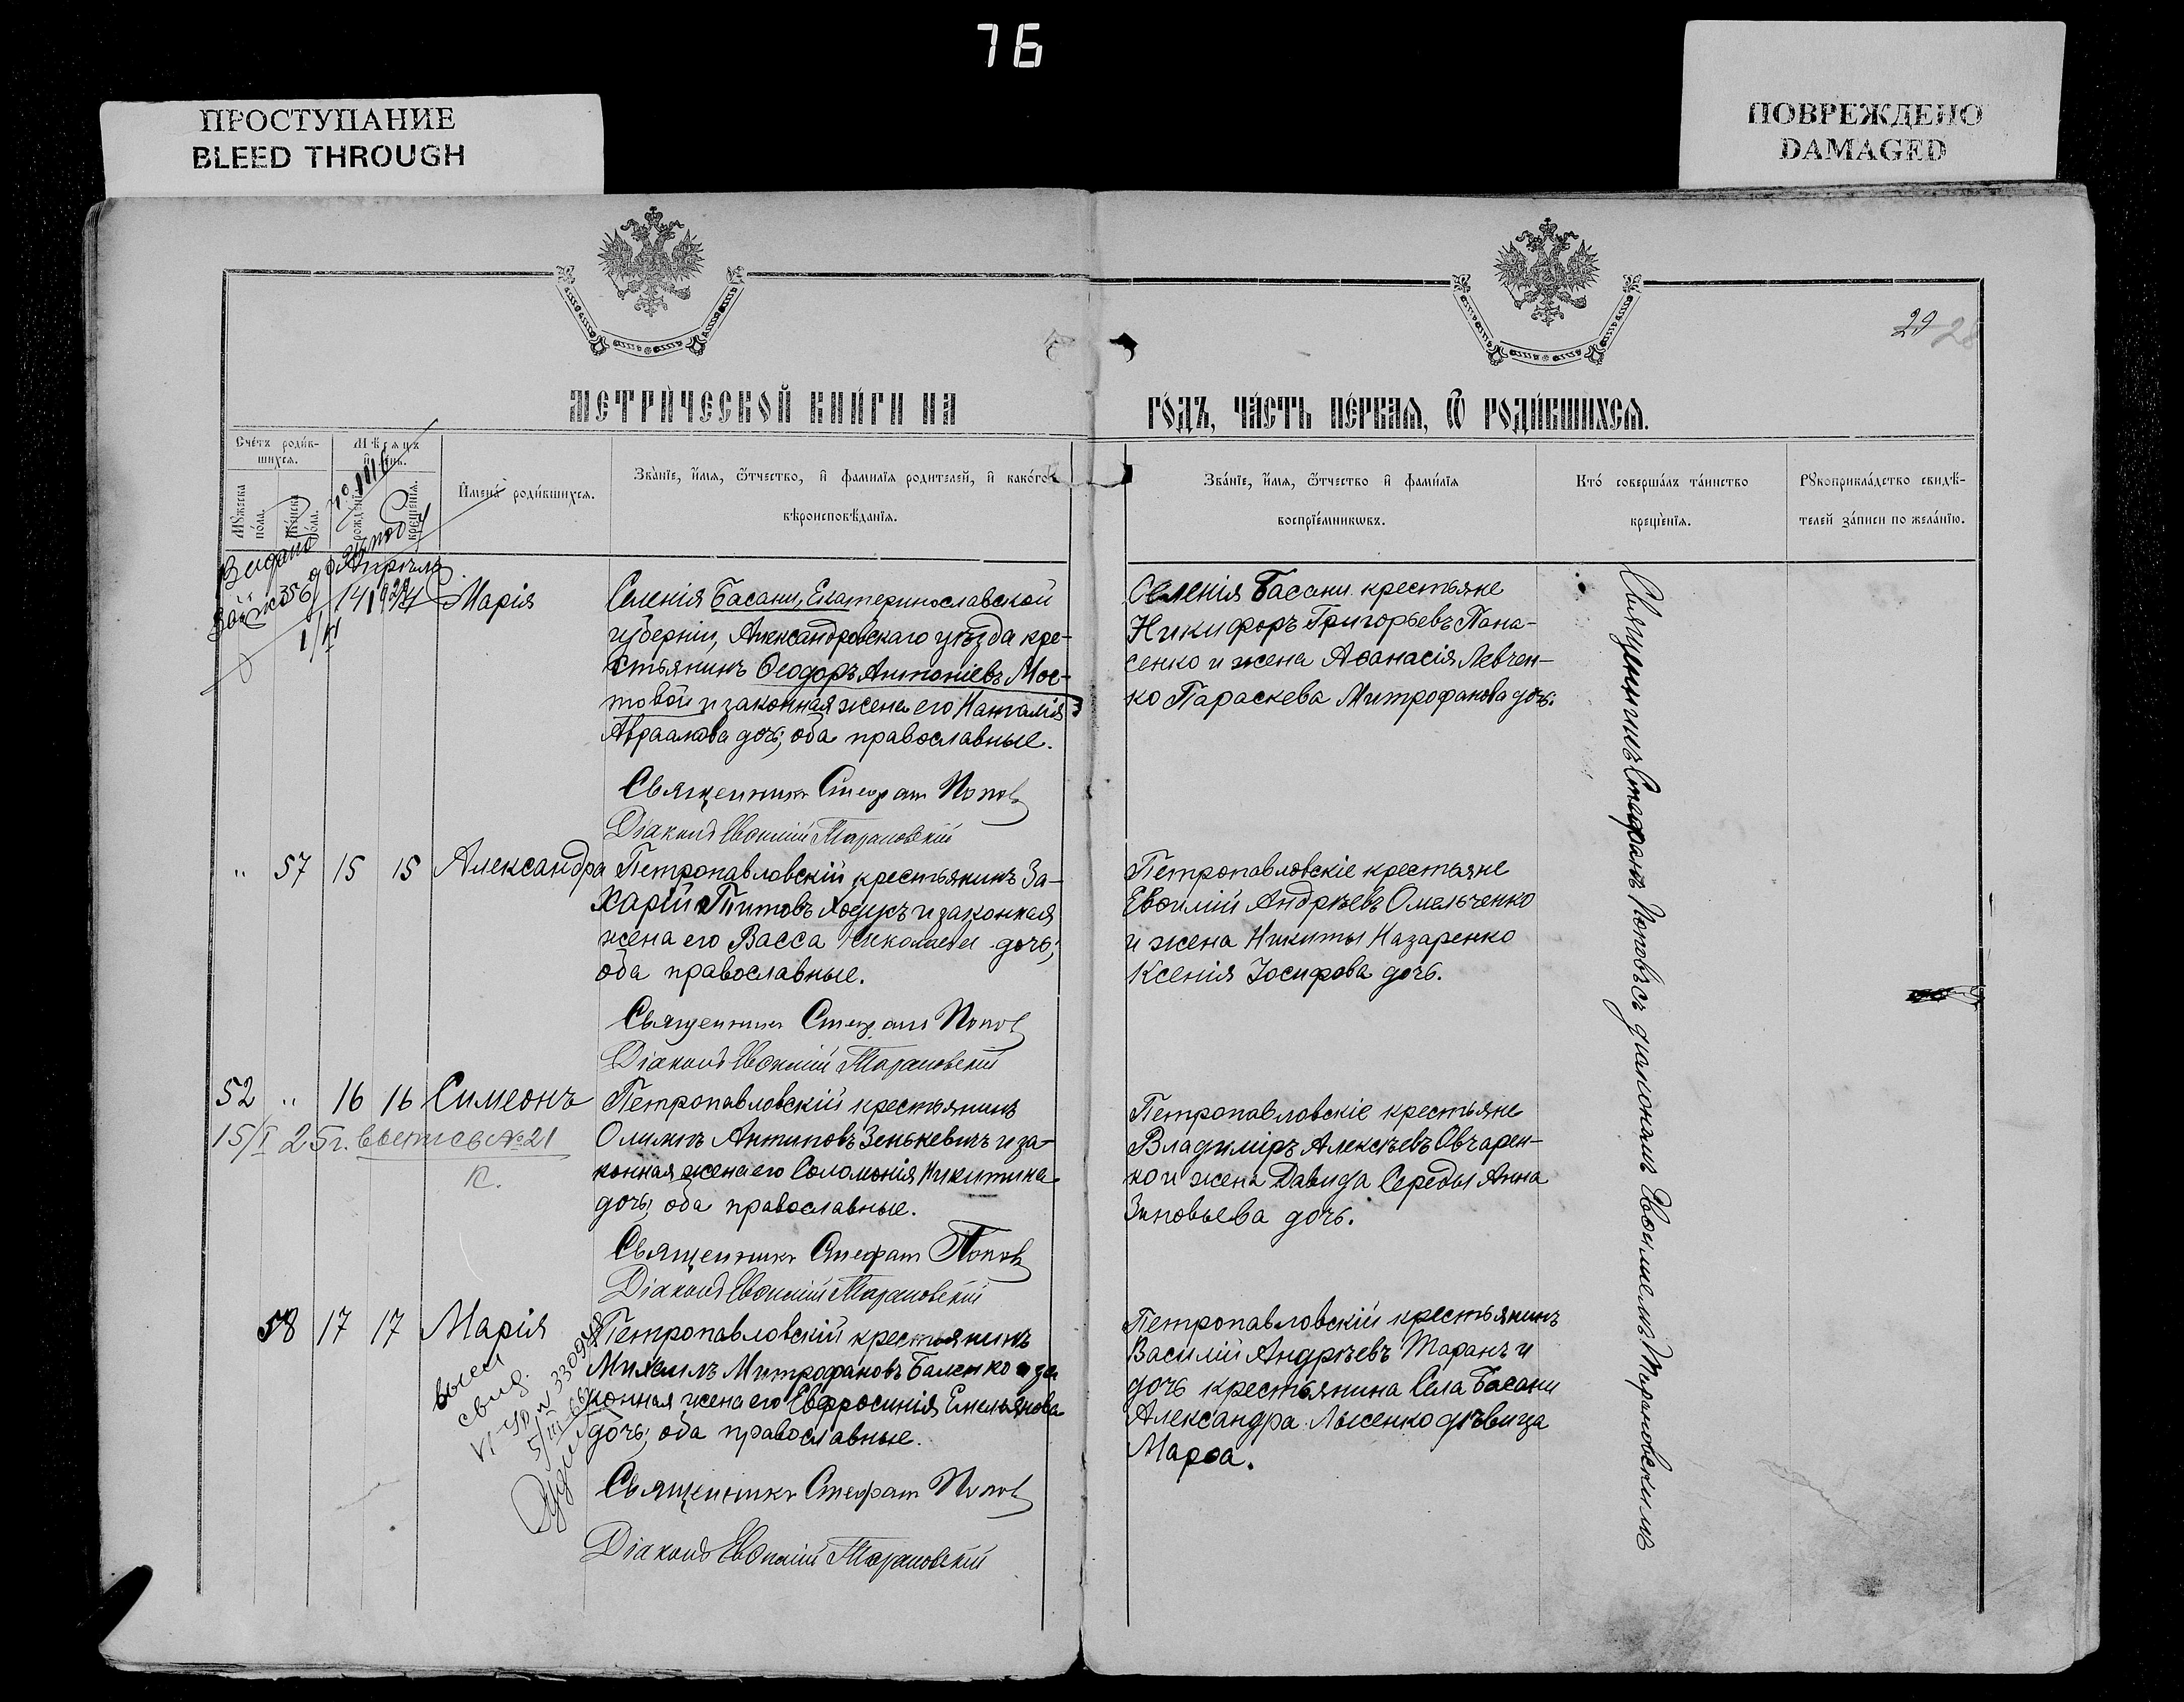 76
ПРОСТУПАНИЕ
BLEED THROUGH
ПОВРЕЖДЕНО
DAMAGED
29 28
МЕТРИ́ЧЕСКОЙ КНИ́ГИ НА
ГО́ДЪ, ЧА́СТЬ ПЕ́РВАЯ, Ѿ РОДИ́ВШИХСЯ.
Сче́тъ роди́в-
шихся.
Мѣсяцъ
и҆ день.
Мꙋжеска
по́ла.
Женска
по́ла.
рожденїѧ.
крещенїѧ.
И҆мена̀ роди́вшихся.
Зва́нїе, и҆́мя, ѻ҆́тчество, и҆ фамилїя родителей, и҆ како́гѡ
вѣроисповѣ́данїя.
Зва́нїе, и҆́мя, ѻ҆́тчество и҆ фами́лїя
воспрїе́мникѡвъ.
Кто́ соверша́лъ та́инство
креще́нїя.
Рꙋкоприкла́дство свидѣ́-
телей за́писи по жела́нїю.
Апрѣль
Видано
56 14 14 Марія
Селенія Басани, Екатеринославской
губерніи, Александровскаго уѣзда кре-
стьянинъ Ѳеодоръ Антоніевъ Мос-
товой и законная жена его Наталія
Авраамова дочь; оба православные.
Священникъ Стефанъ Поповъ
Діаконъ Евѳимій Тарановскій
Селенія Басани крестьяне
Никифоръ Григорьевъ Пана-
сенко и жена Аѳанасія Левчен-
ко Параскева Митрофанова дочь.
Священникъ Стефанъ Поповъ съ діакономъ Евѳиміемъ Тарановскимъ
" 57 15 15 Александра
Петропавловскій крестьянинъ За-
харій Титовъ Ходусъ и законная
жена его Васса Николаева дочь;
оба православные.
Священникъ Стефанъ Поповъ
Діаконъ Евѳимій Тарановскій
Петропавловскіе крестьяне
Евѳимій Андреевъ Омельченко
и жена Никиты Назаренко
Ксенія Іосифова дочь.
52 " 16 16 Симеонъ
15/I 25г. выпись №21
Петропавловскій крестьянинъ
Олимпъ Антиповъ Зенькевичъ и за-
конная жена его Соломонія Никитина
дочь; оба православные.
Священникъ Стефанъ Поповъ
Діаконъ Евѳимій Тарановскій
Петропавловскіе крестьяне
Владиміръ Алексѣевъ Овчарен-
ко и жена Давида Середы Анна
Зиновьева дочь.
58 17 17 Марія
Петропавловскій крестьянинъ
Михаилъ Митрофановъ Баленко и за
конная жена его Евфросинія Емельянова
дочь; оба православные.
Священникъ Стефанъ Поповъ
Діаконъ Евѳимій Тарановскій
Петропавловскій крестьянинъ
Василій Андрѣевъ Таранъ и
дочь крестьянина Села Басани
Александра Лысенко дѣвица
Марѳа.